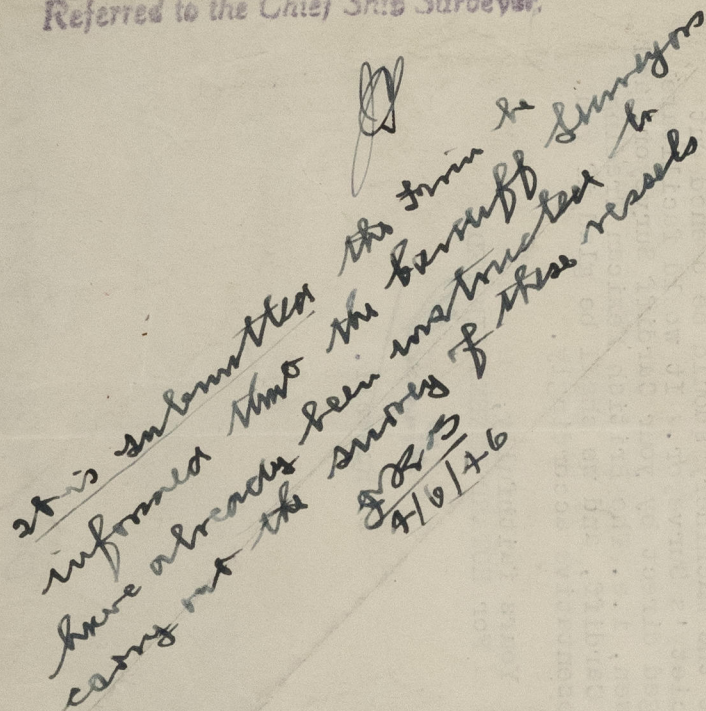 Referred to the Chief Ship Surveyor.
It is submitted the firm be
informed that the Cardiff Surveyors
have already been instructed to
carry out the survey of these vessels
4/6/46